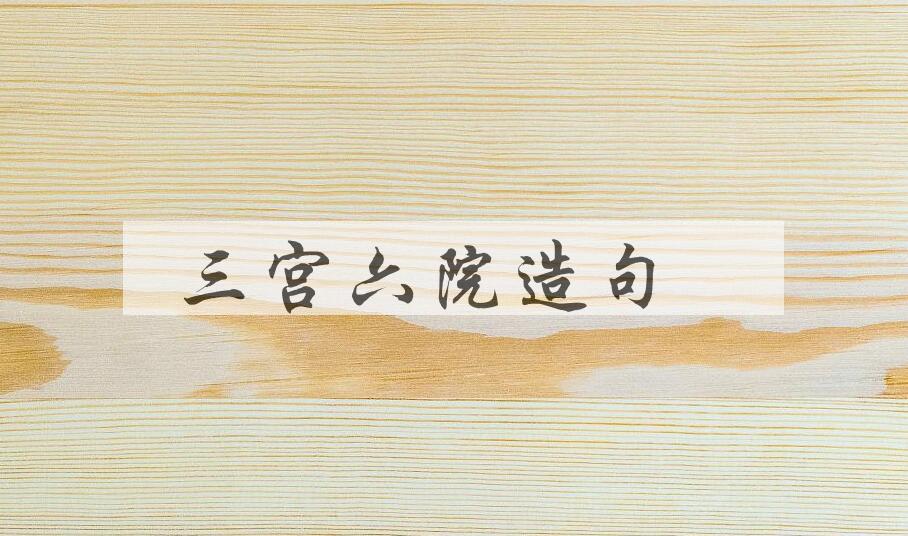 三宫六院造句